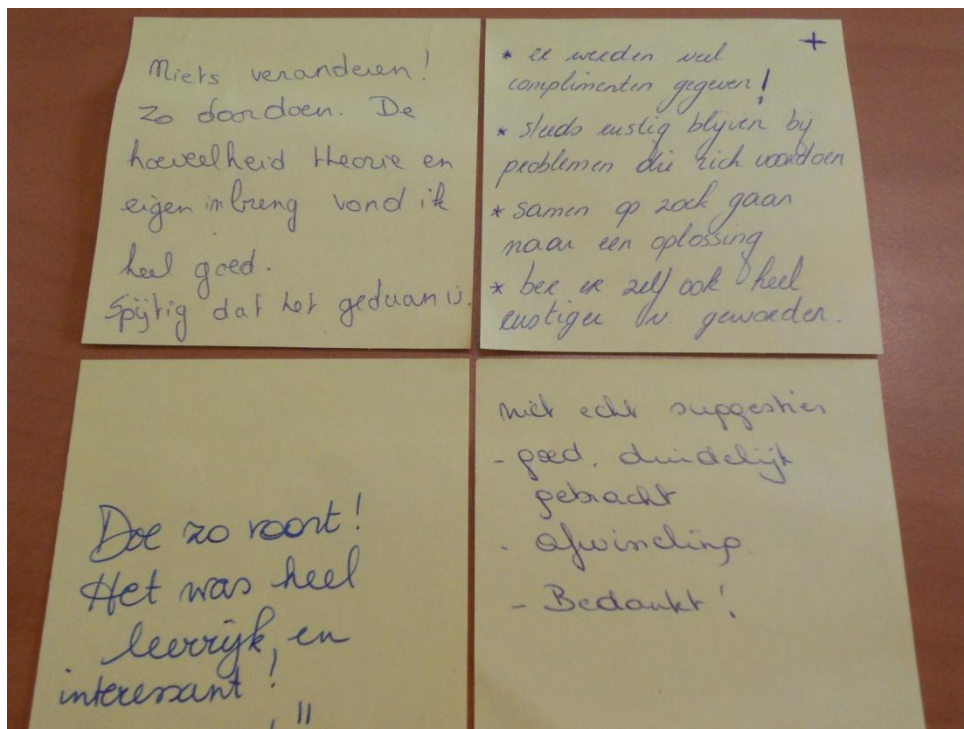 Niets veranderen!
Zo doordoen. De
hoeveelheid theorie en
eigen inbreng vond ik
heel goed.
Spijtig dat het gedaan is.
+
* er werden veel
complimenten gegeven!
* steeds rustig blijven bij
problemen die zich voordoen
* samen op zoek gaan
naar een oplossing
* ben er zelf ook heel
rustiger in geworden.
Doe zo voort!
Het was heel
leerrijk, en
interessant!
niet echt suggesties
- goed, duidelijk
gebracht
- afwisseling
- Bedankt!